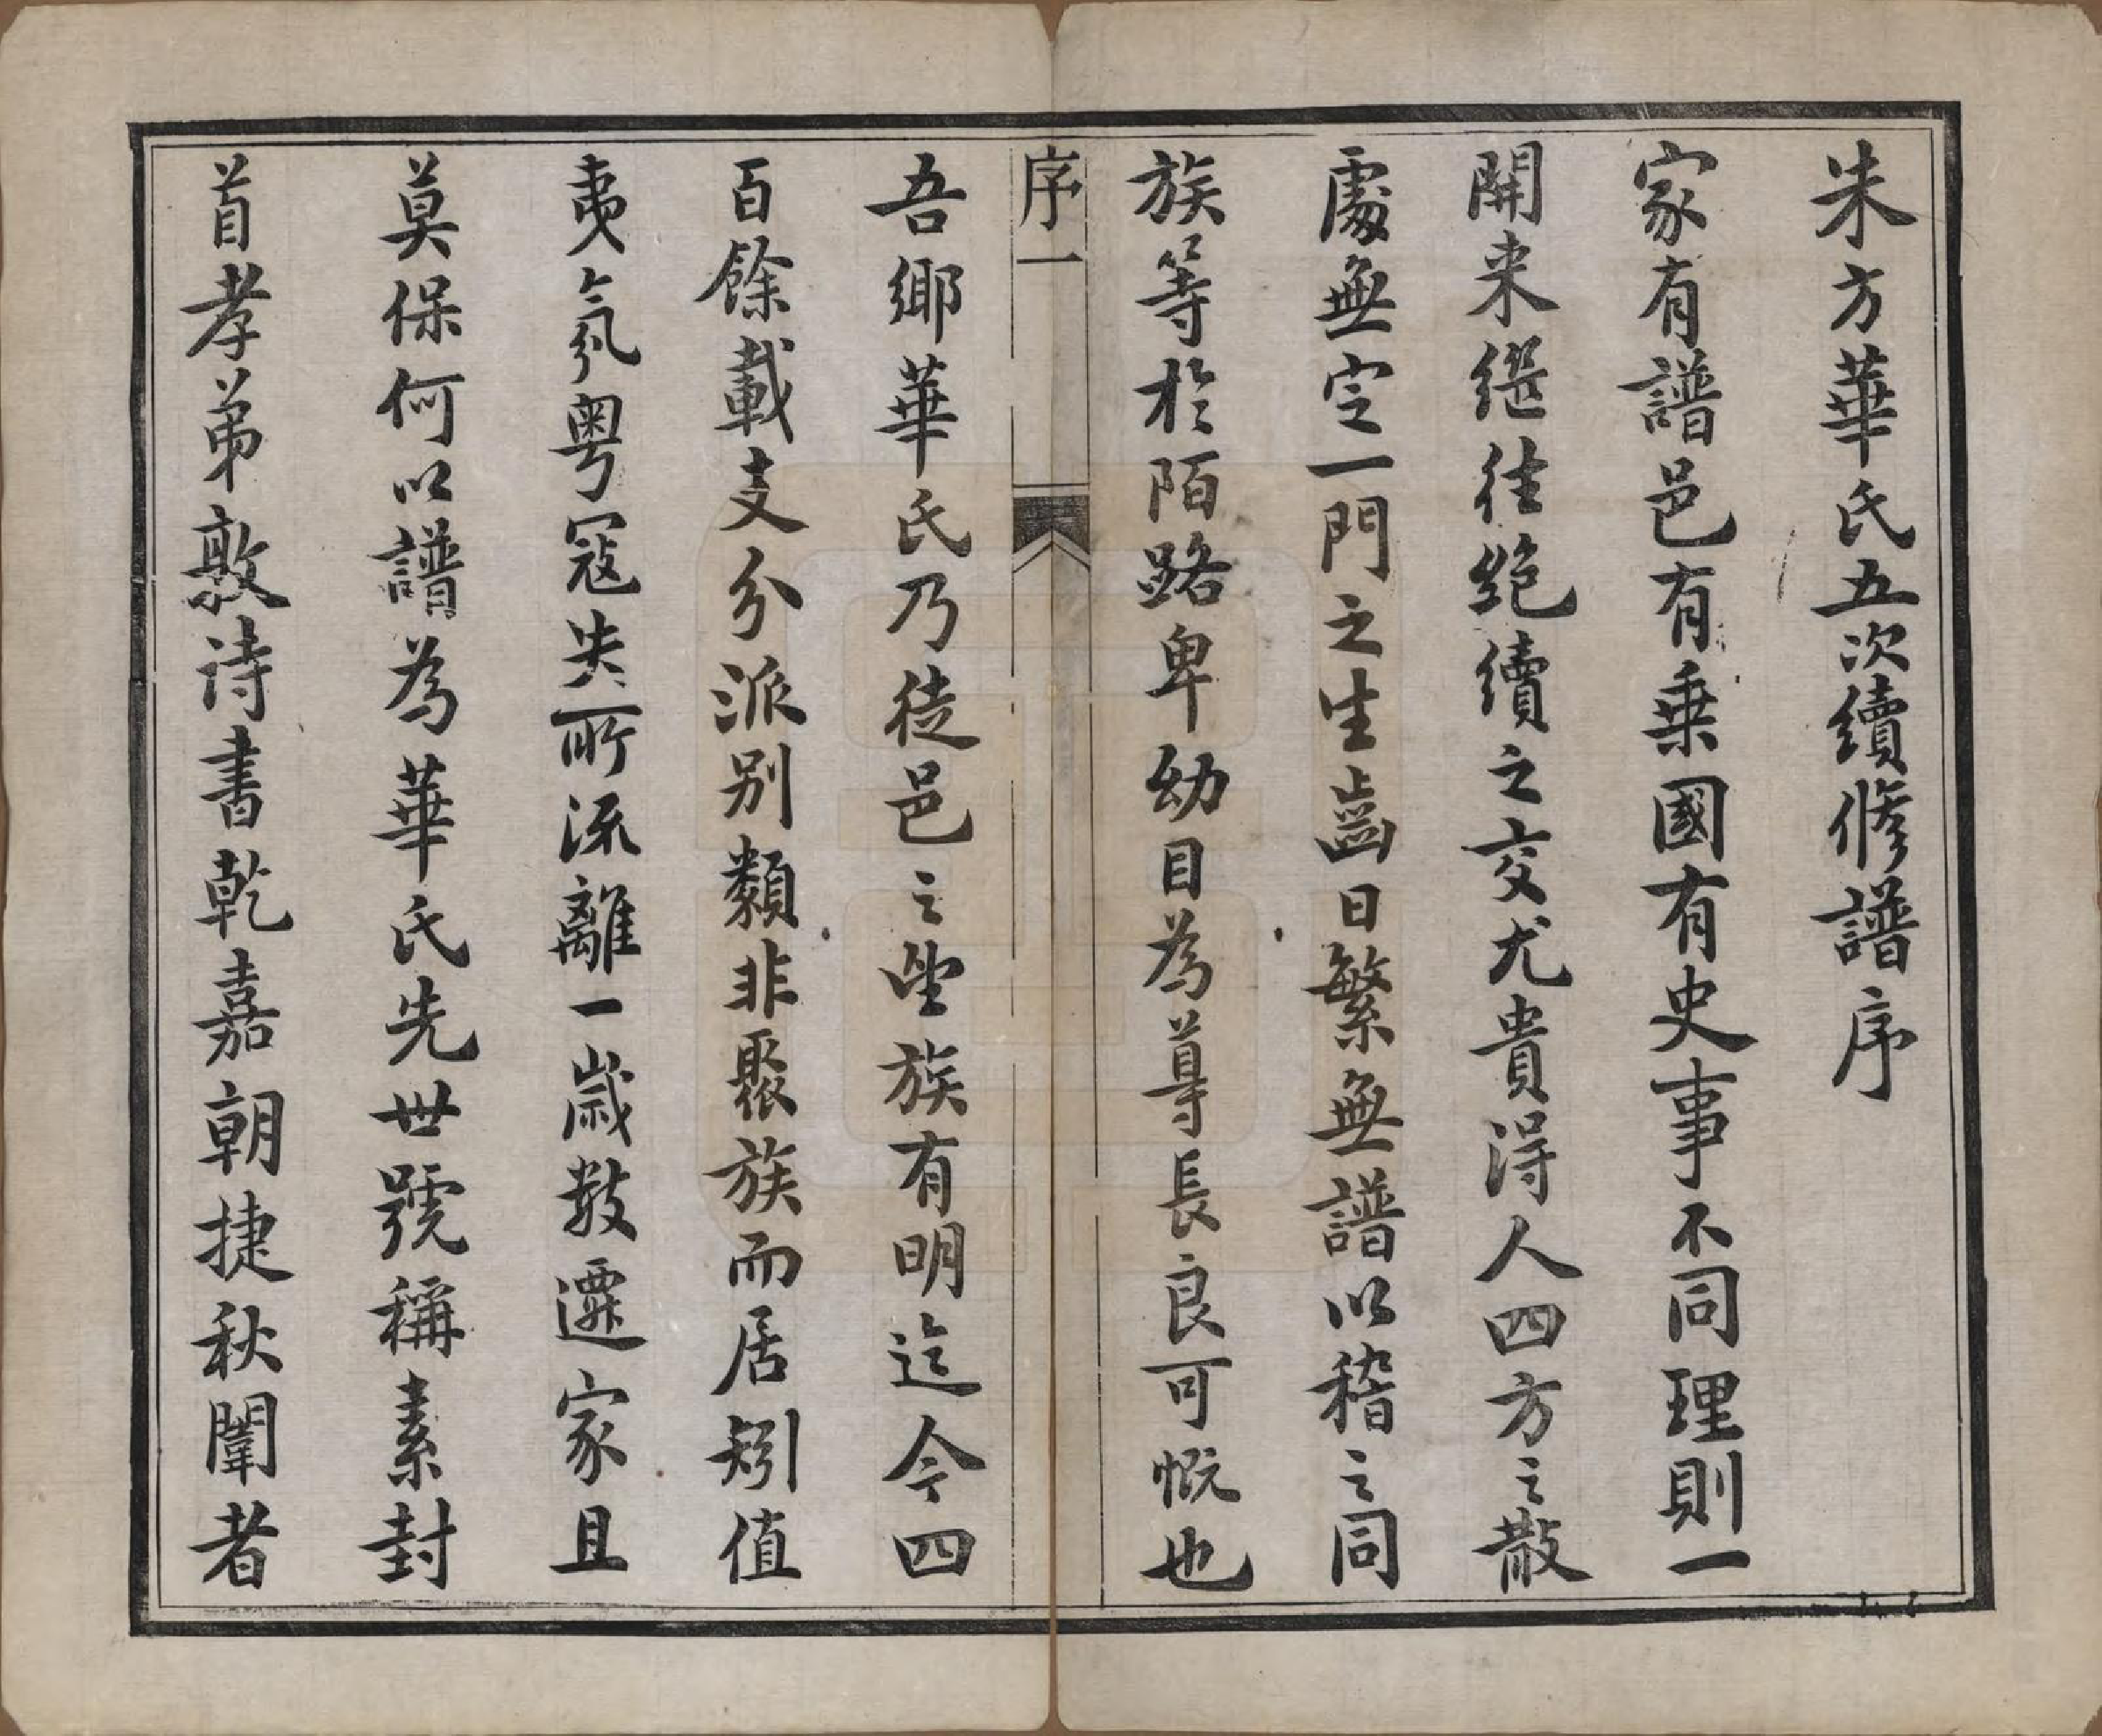 朱方華氏五次續修譜序
家有譜邑有乗國有史事不同理則一
開来継徃絶續之交尤貴得人四方之散
處無定一門之生齒日繁無譜以稽之同
族等於陌路卑幼目為尊長良可慨也
序一
吾鄉華氏乃徒邑之望族有明迄今四
百餘載支分派別類非聚族而居矧值
夷氛粤寇失所流離一歲數遷家且
莫保何以譜為華氏先世號稱素封
首孝弟敦诗書乾嘉朝捷秋闈者